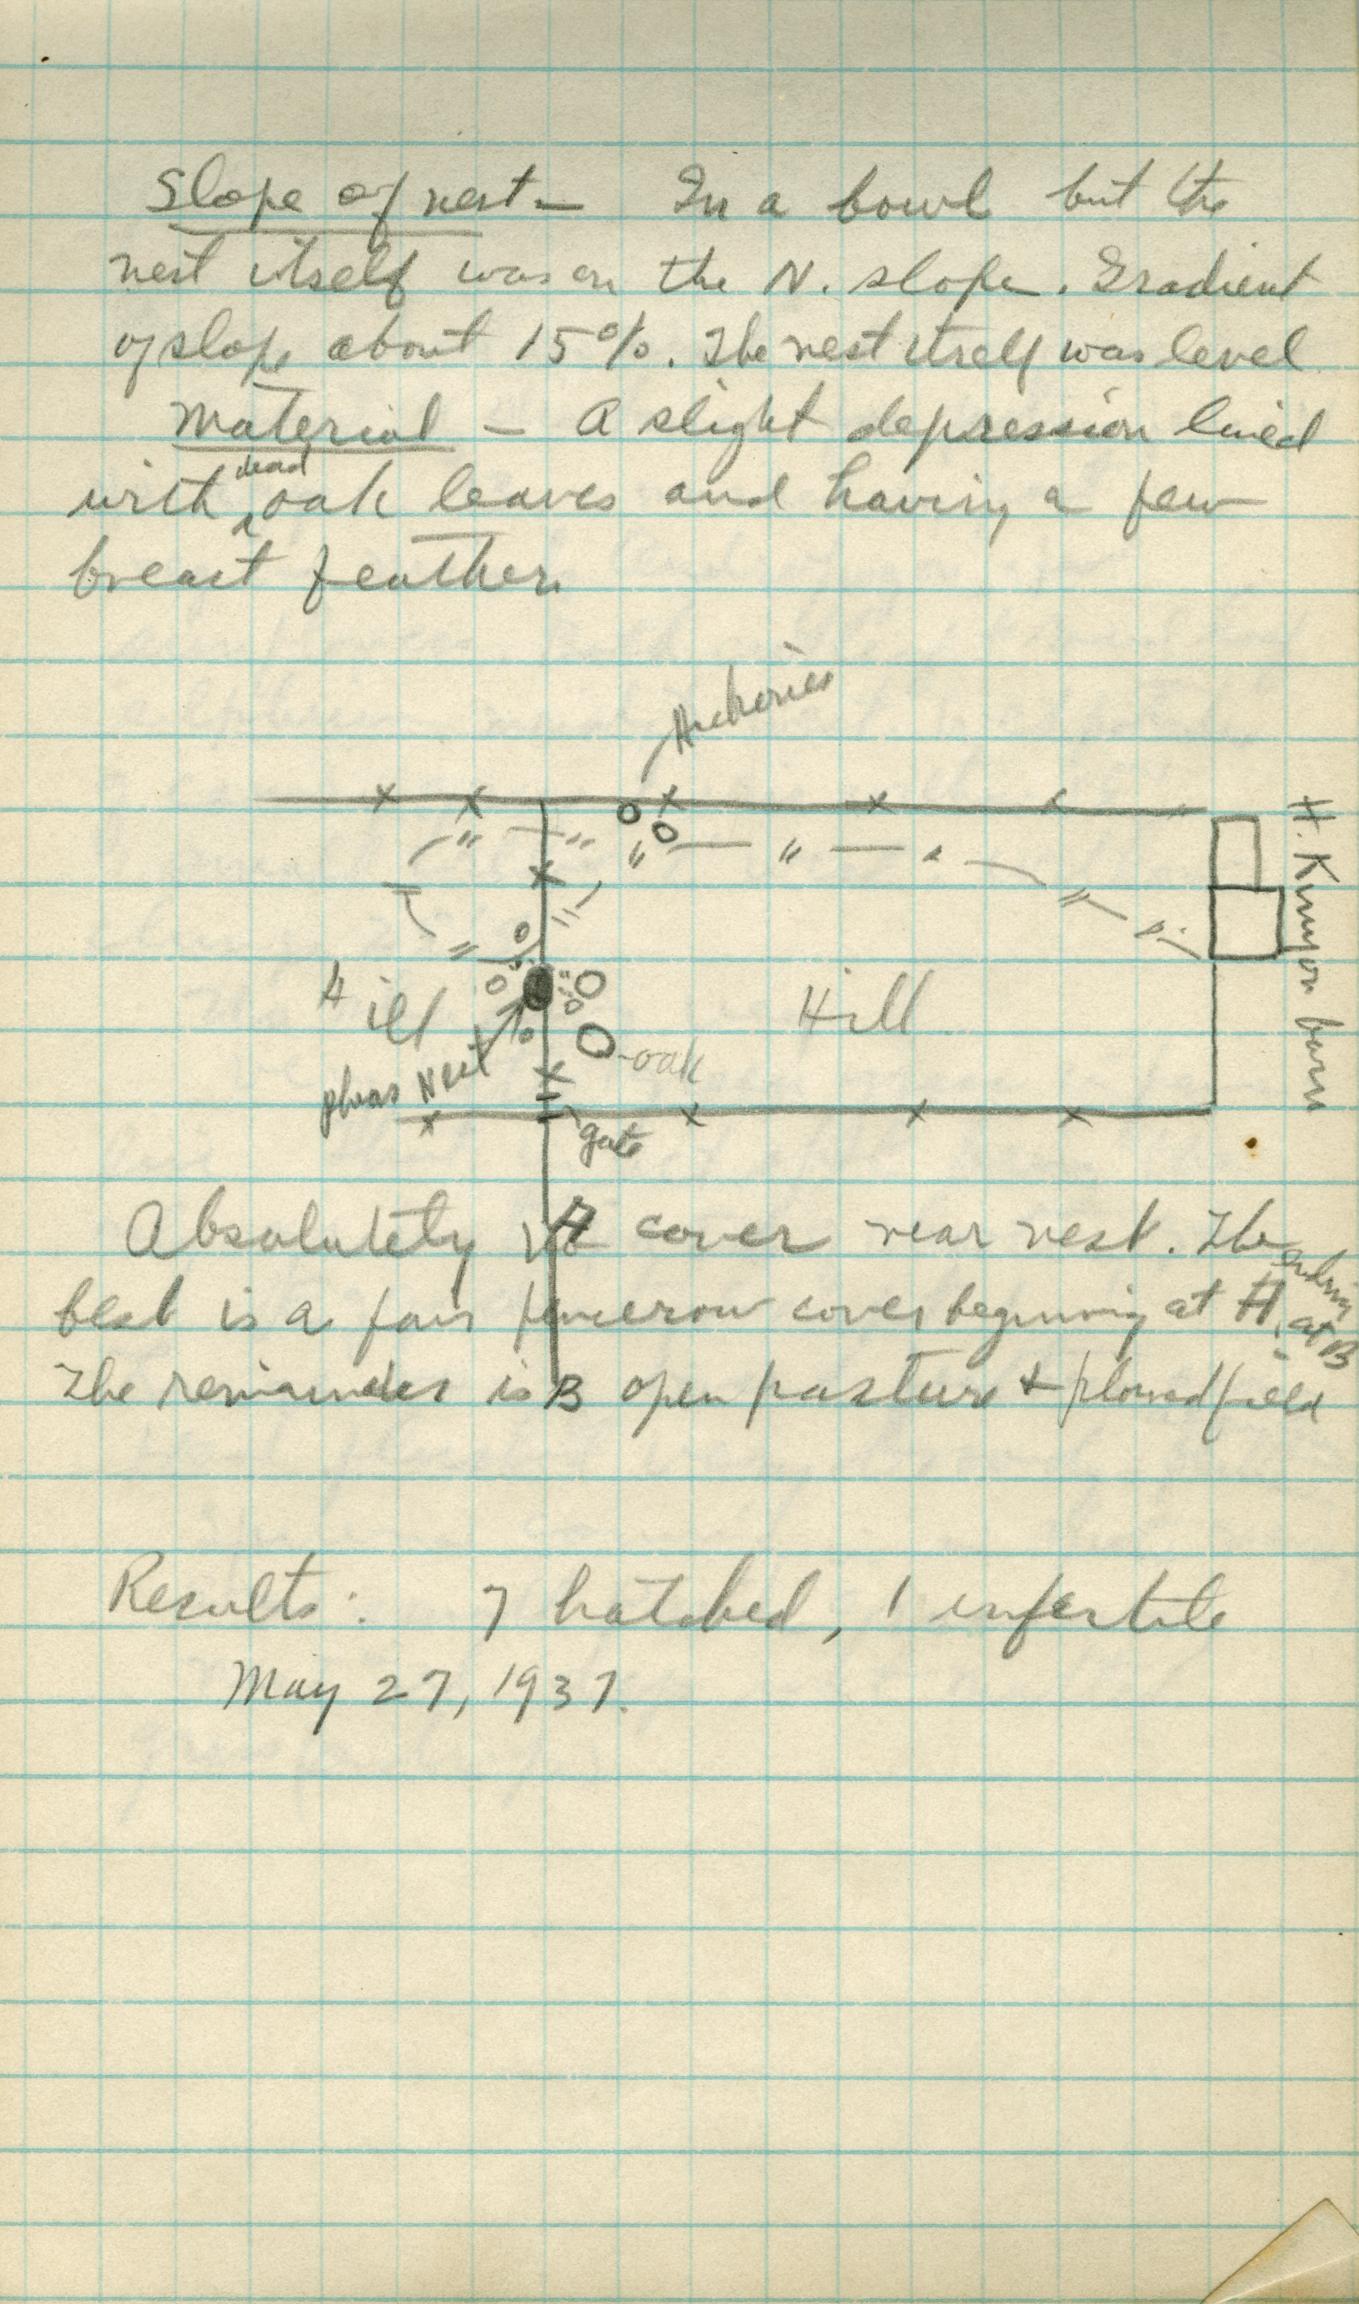 Slope of nest – In a bowl but the
nest itself was on the N. slope. Gradient
of slope about 15%. The nest itself was level
Material – A slight depression lined
with dead oak leaves and having a few
breast feathers
Hickories
H. Kinyon barn
Hill
Hill
oak
pheas Nest
gate
A
Absolutely no cover near nest. The
best is a fair fencerow cover beginning at A, ending at B
The remainder is open pasture & plowed field
B
Results: 7 hatched, 1 infertile
May 27, 1937.